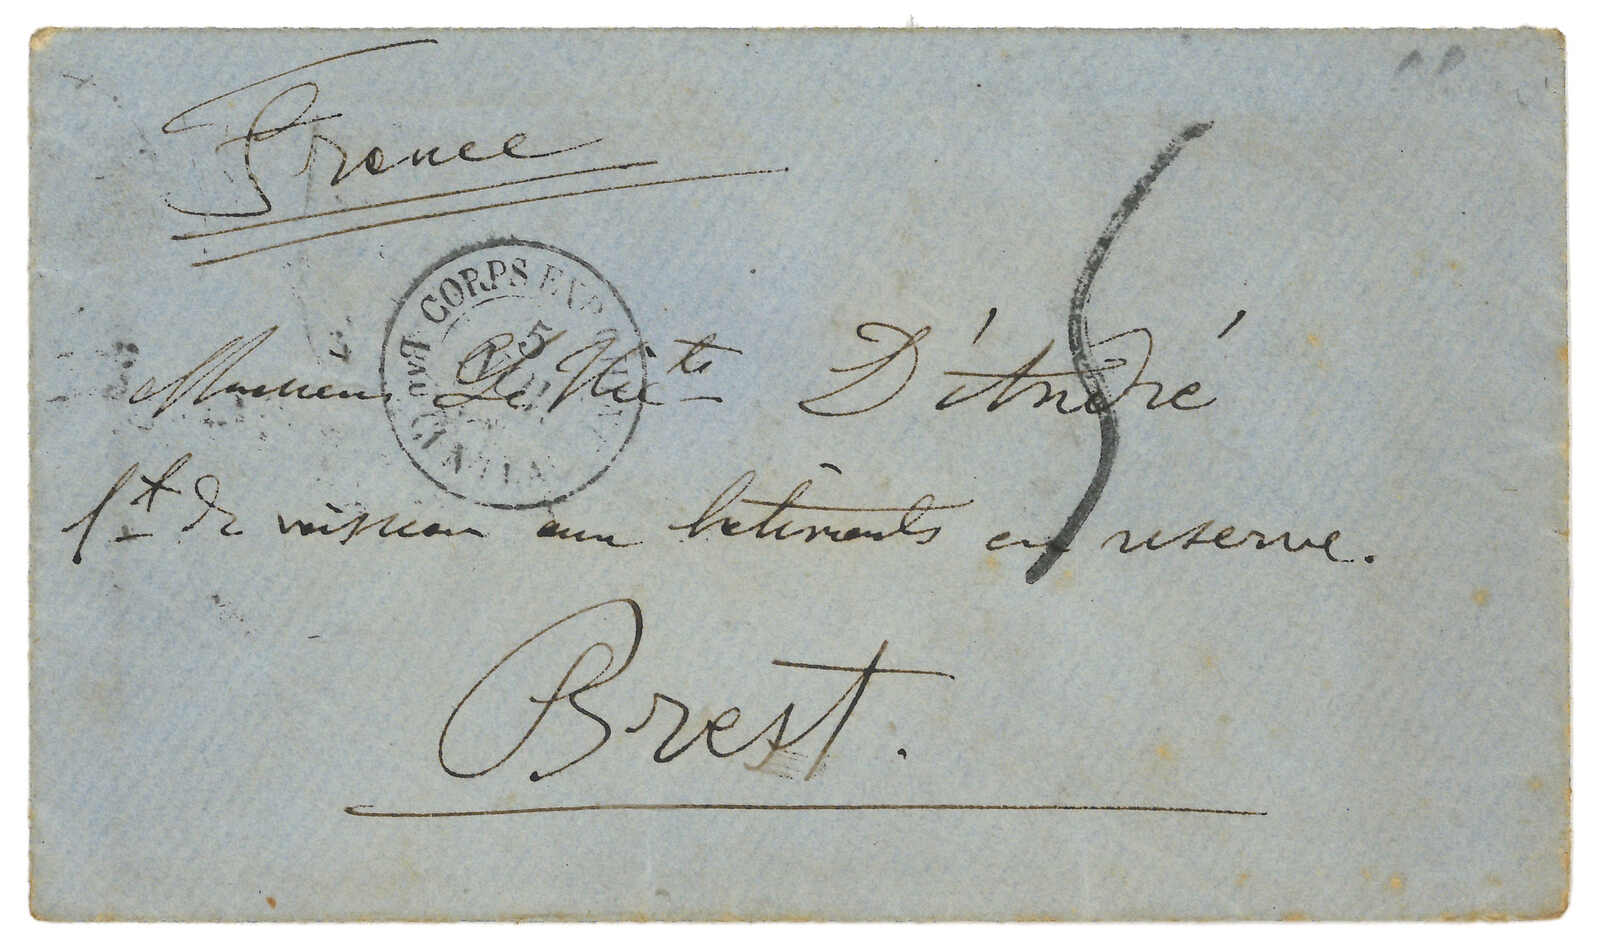 France
CORPS EXP
5
Monsieur Le Victe D'André
Lt de vaisseau aux batiments en reserve.
Brest.